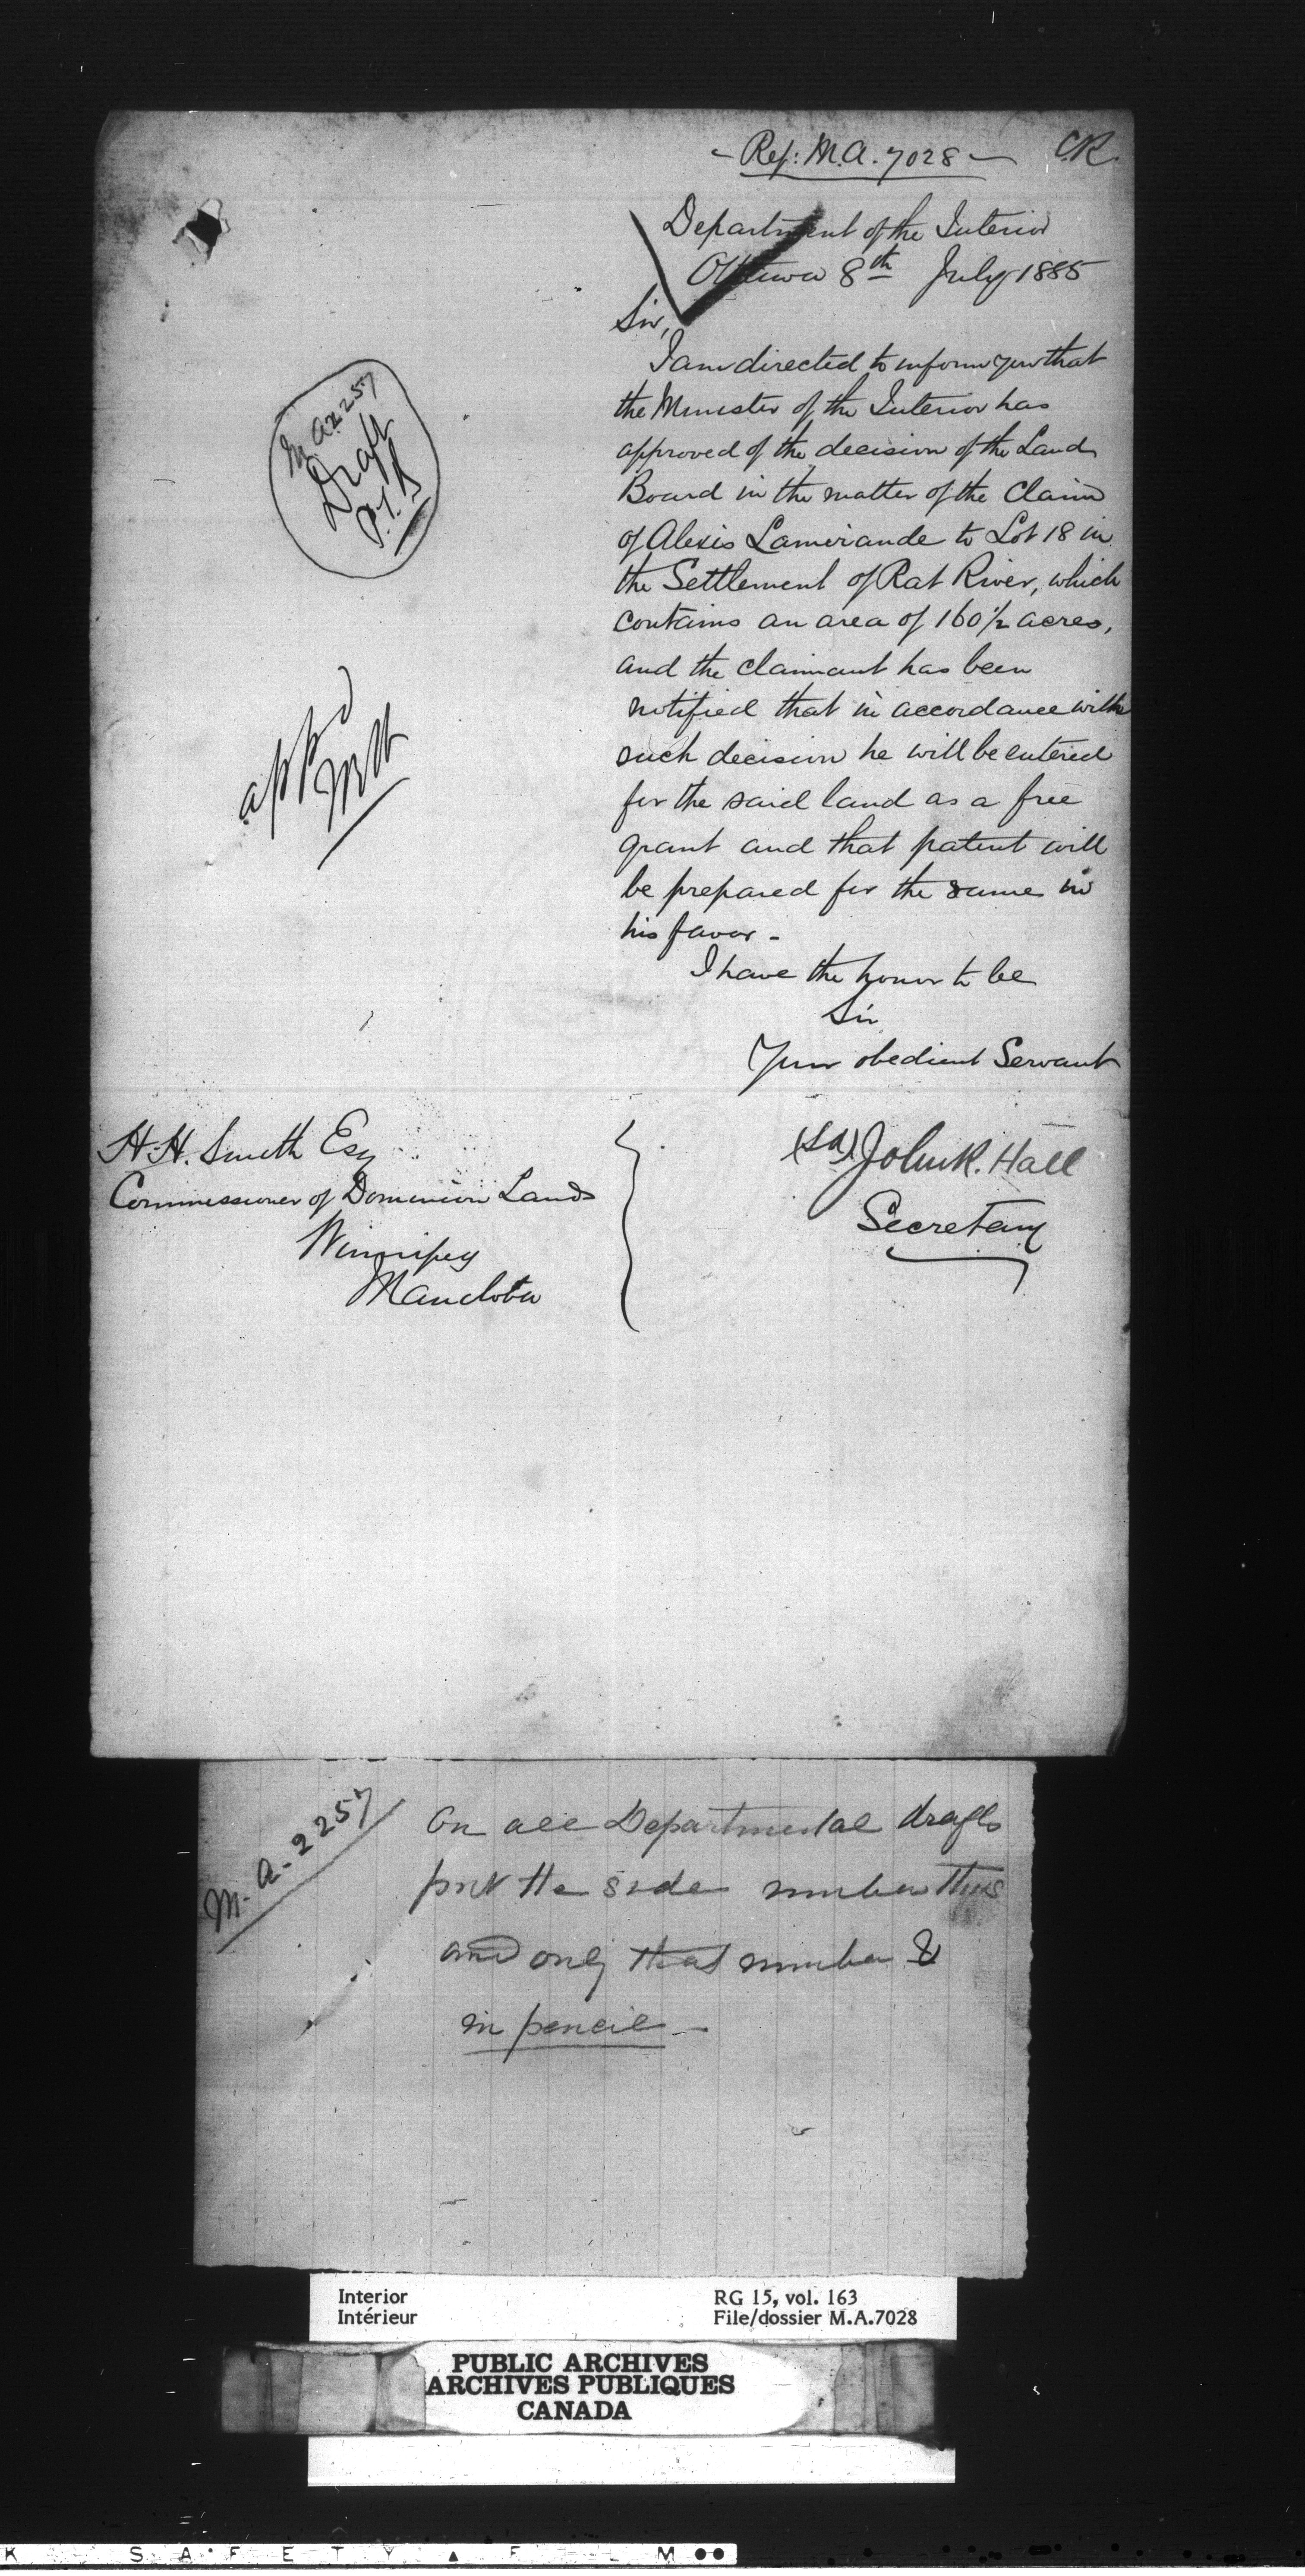 - Ref: M.A. 7028 - CR.
Department of the Interior
Ottawa 8th July 1885
Sir,
I am directed to inform you that
the Minister of the Interior has
approved of the decision of the Land
Board in the matter of the Claim
of Alexis Lamirande to Lot 18 in
the Settlement of Rat River, which
contains an area of 160½ acres,
and the claimant has been
notified that in accordance with
such decision he will be entered
for the said land as a free
grant and that patent will
be prepared for the same in
his favor -
I have the honor to be
Sir
Your obedient Servant
(Sd) John R. Hall
Secretary
H.H. Smith Esq
Commissioner of Dominion Lands
Winnipeg
Manitoba
M.A. 2257
Draft
appd
M.A. 2257
On all Departmental drafts
put the side number thus
and only that number &
in pencil -
Interior
Intérieur
RG 15, vol. 163
File/dossier M.A.7028
PUBLIC ARCHIVES
ARCHIVES PUBLIQUES
CANADA
K SAFETY FILM